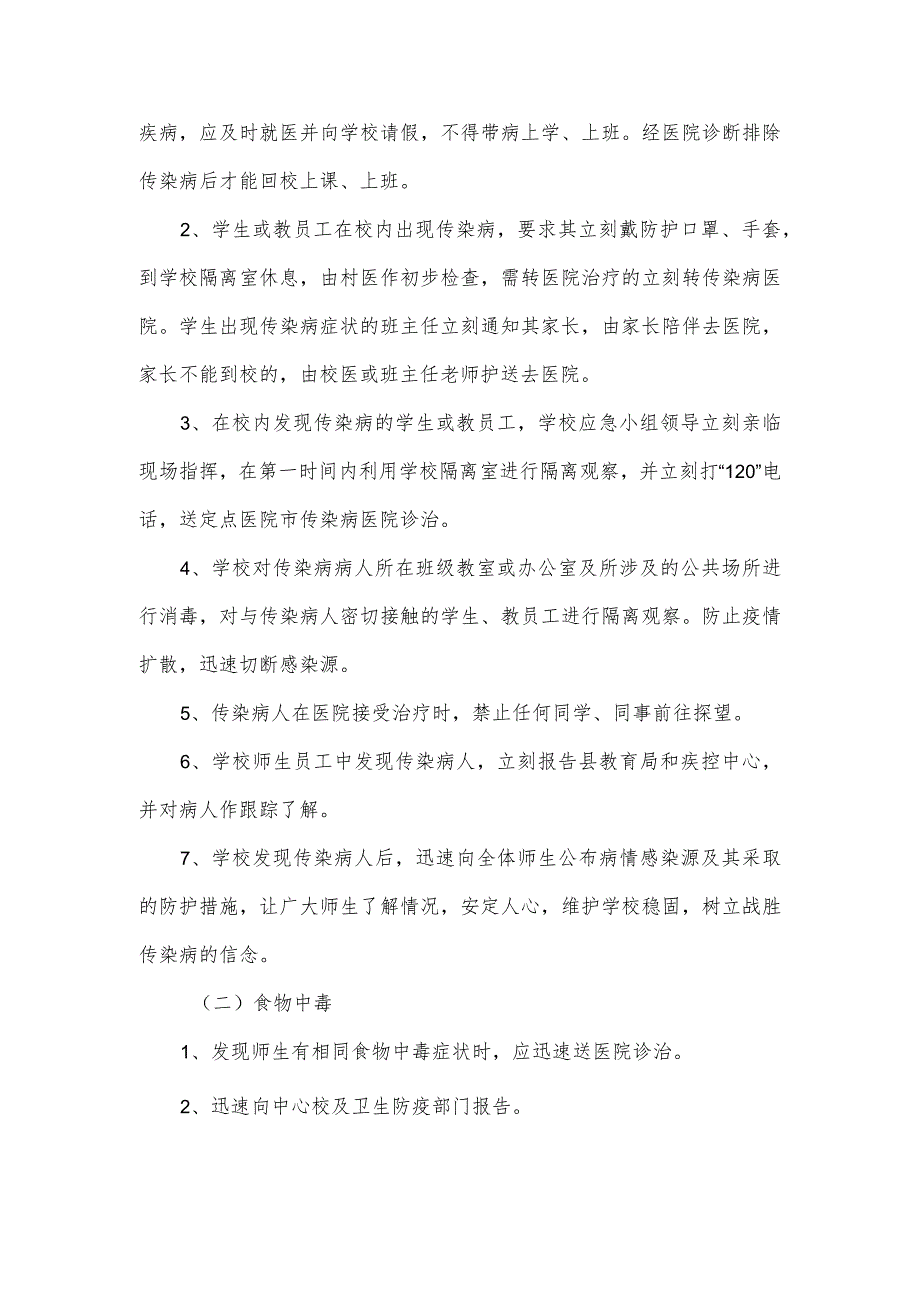 疾病，应及时就医并向学校请假，不得带病上学、上班。经医院诊断排除
传染病后才能回校上课、上班。
2、学生或教员工在校内出现传染病，要求其立刻戴防护口罩、手套，
到学校隔离室休息，由村医作初步检查，需转医院治疗的立刻转传染病医
院。学生出现传染病症状的班主任立刻通知其家长，由家长陪伴去医院，
家长不能到校的，由校医或班主任老师护送去医院。
3、在校内发现传染病的学生或教员工，学校应急小组领导立刻亲临
现场指挥，在第一时间内利用学校隔离室进行隔离观察，并立刻打“120”电
话，送定点医院市传染病医院诊治。
4、学校对传染病病人所在班级教室或办公室及所涉及的公共场所进
行消毒，对与传染病人密切接触的学生、教员工进行隔离观察。防止疫情
扩散，迅速切断感染源。
5、传染病人在医院接受治疗时，禁止任何同学、同事前往探望。
6、学校师生员工中发现传染病人，立刻报告县教育局和疾控中心，
并对病人作跟踪了解。
7、学校发现传染病人后，迅速向全体师生公布病情感染源及其采取
的防护措施，让广大师生了解情况，安定人心，维护学校稳固，树立战胜
传染病的信念。
（二）食物中毒
1、发现师生有相同食物中毒症状时，应迅速送医院诊治。
2、迅速向中心校及卫生防疫部门报告。